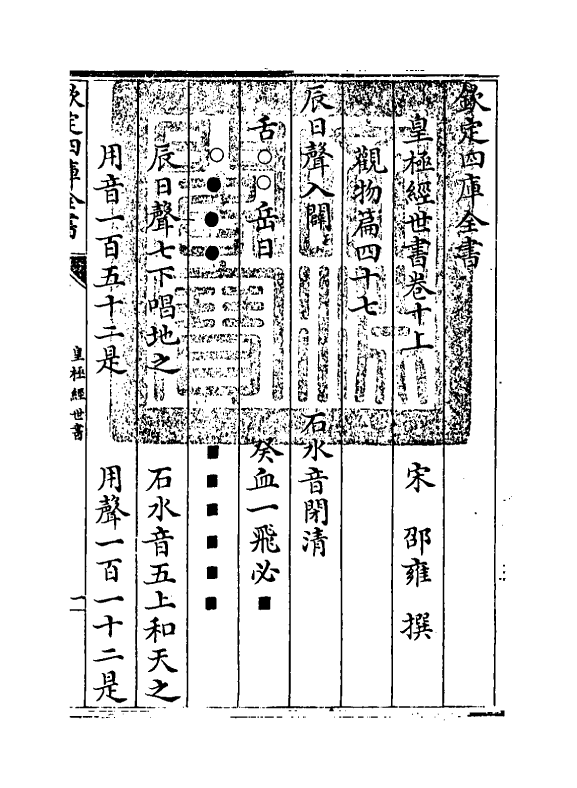 欽定四庫全書
皇極經世書卷十上
宋 邵雍 撰
觀物篇四十七
辰日聲入闢
石水音開清
舌○○岳日
癸血一飛必■
○●●●
■■■■■■
辰日聲七下唱地之
石水音五上和天之
用音一百五十二是
用聲一百一十二是
欽定四庫全書
皇極經世書
一